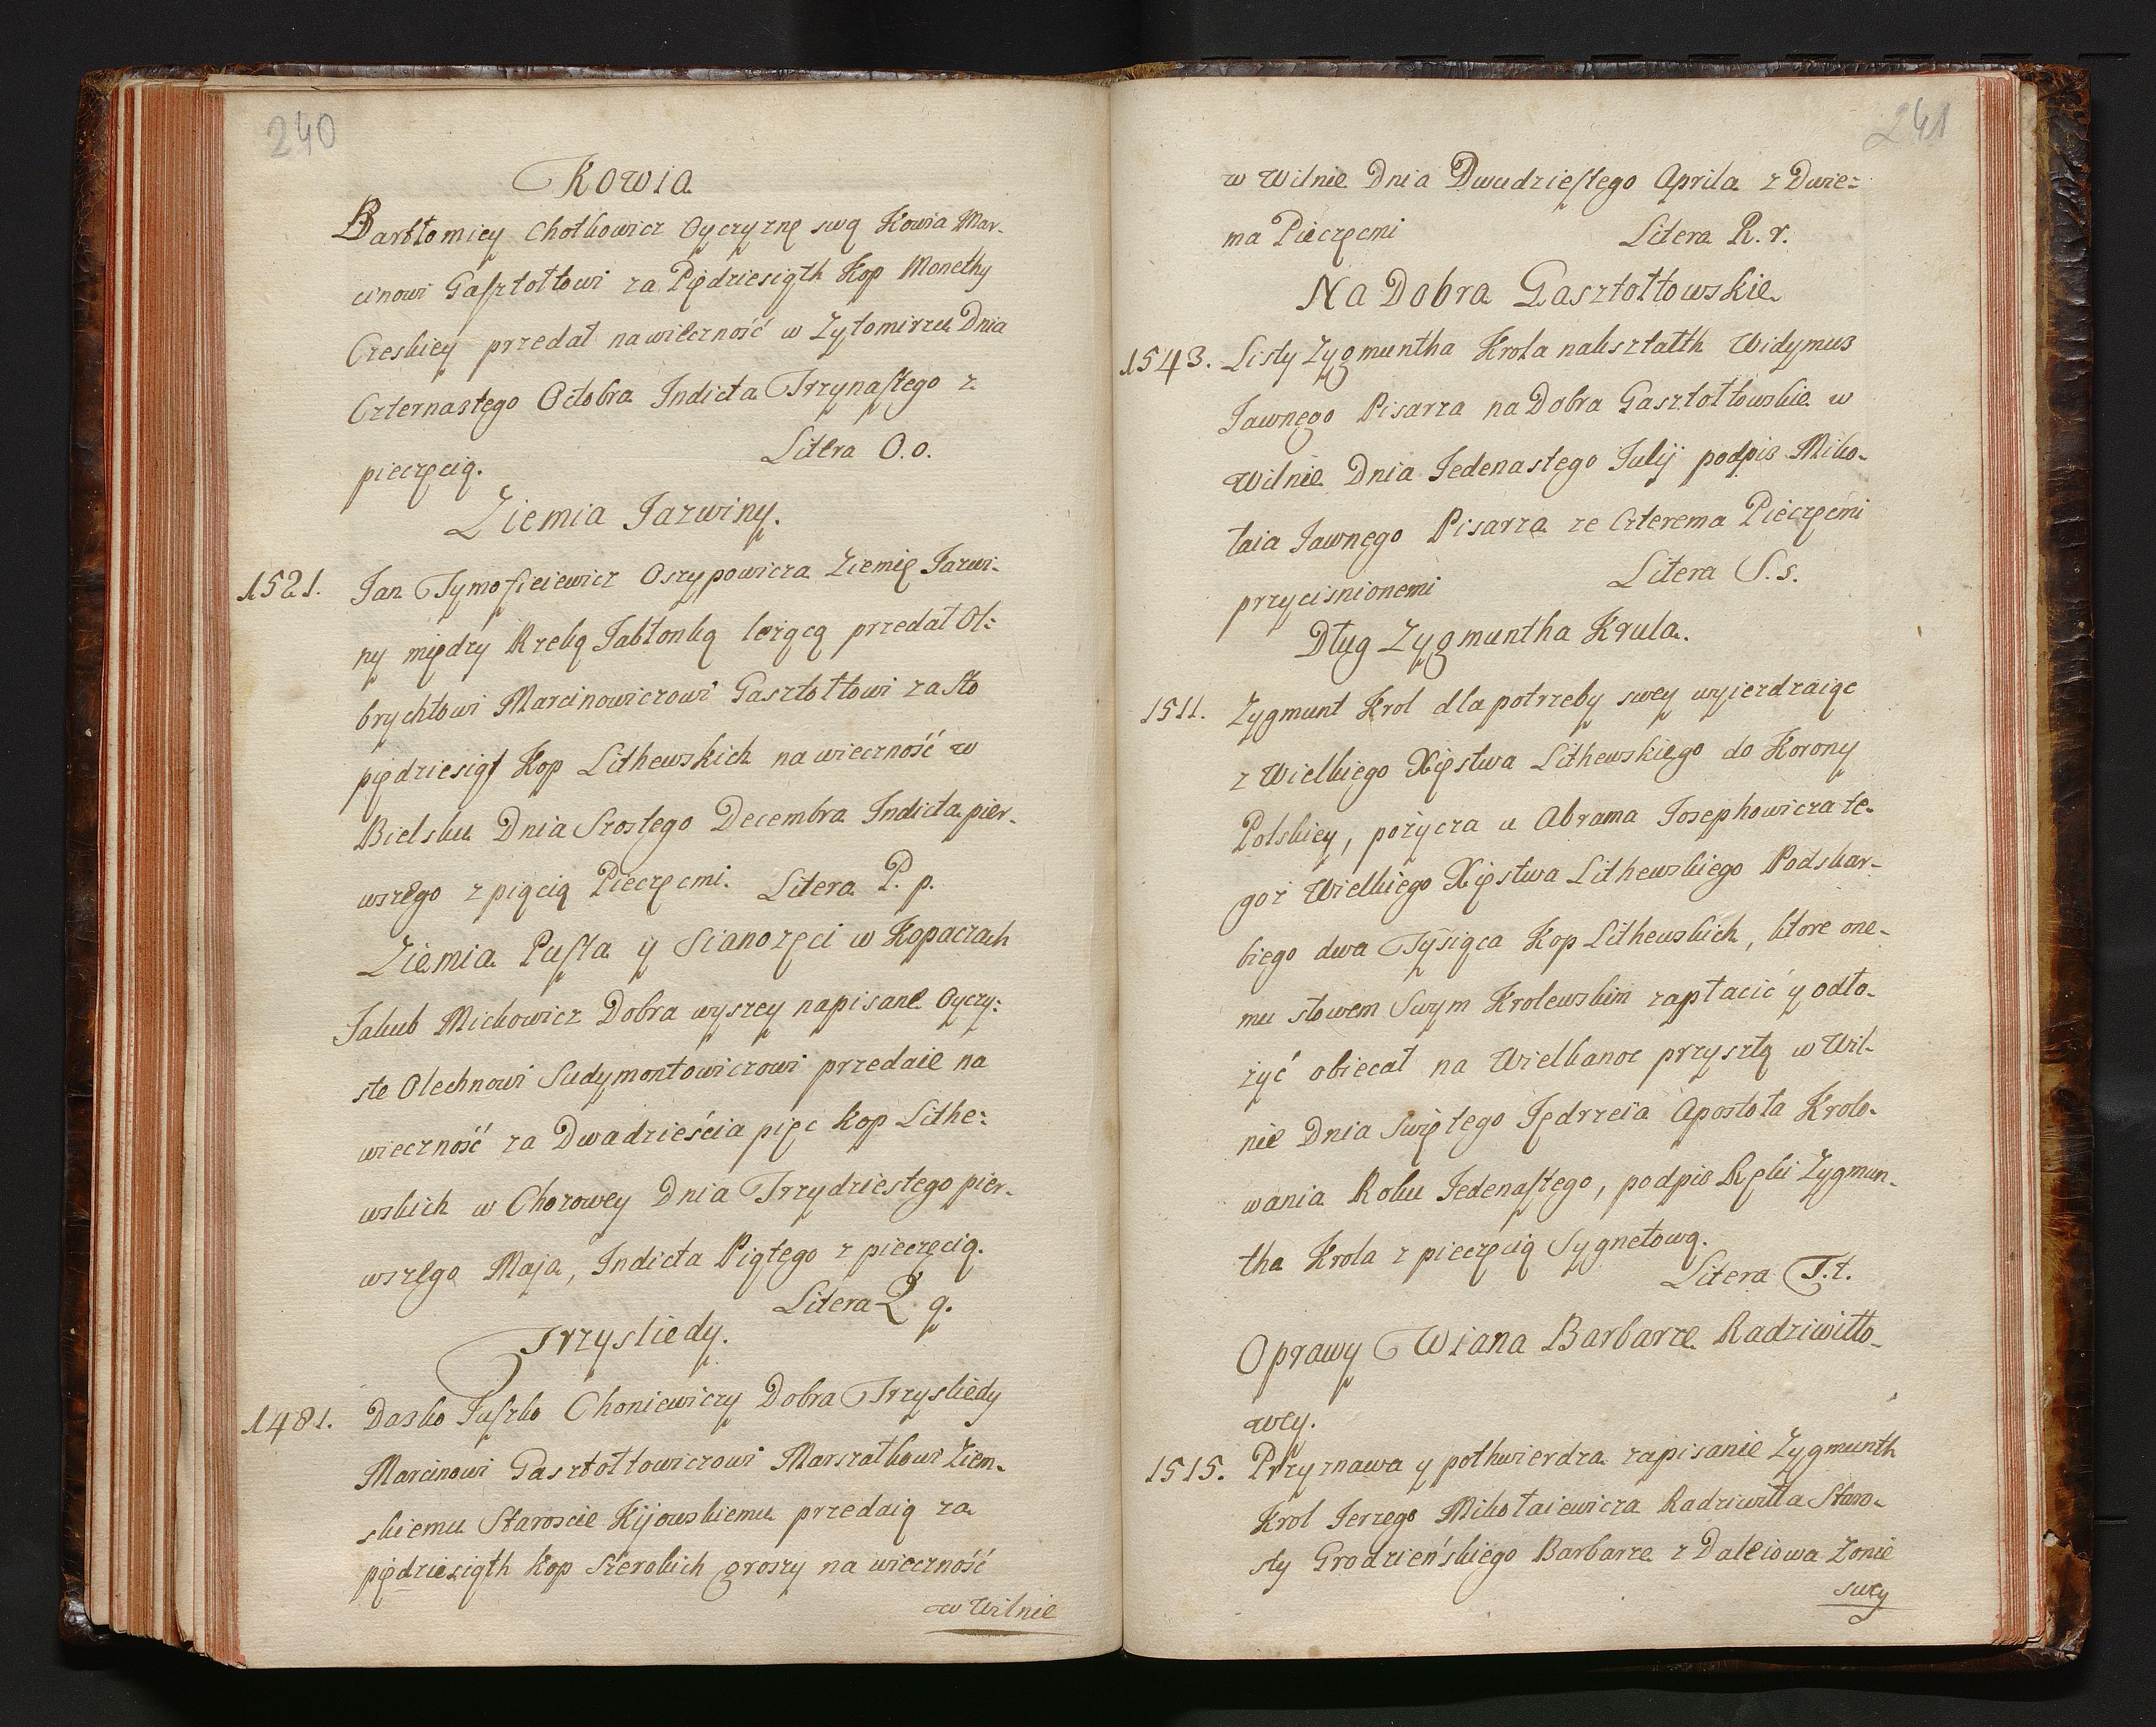 240
Kowia
Bartłomiey Chotkowicz Oyczyznę swą Kowia Mar-
cinowi Gasztołtowi za Piędziesiąth Kop Monethy
Czeskiey przedał na wieczność w Zytomirzu Dnia
Czternastego Octobra Indicta Trzynastego z
pieczęcią. Litera O. o.
Ziemia Jazwiny.
1521. Jan Tymofieiewicz Oszypowicza Ziemię Jazwi-
ny między Rzeką Jabłonką leżącą przedał Ol:
brychtowi Marcinowiczowi Gasztołtowi za sto
piędziesiąt Kop Lithewskich na wieczność w
Bielsku Dnia Szostego Decembra Indicta pier-
wszego z piącią Pieczęcmi. Litera P. p.
Ziemia Pusta y Sianozęci w Kopaczach
Jakub Mickowicz Dobra wyszey napisane Oyczy:
ste Olechnowi Sudymontowiczowi przedaie na
wieczność za Dwadzieścia pięc kop Lithe:
wskich w Chorowey Dnia Trzydziestego pier-
wszego Maja, Indicta Piątego z pieczęcią.
Litera Q q.
Trzysliedy.
1481. Dasko Juszko Choniewiczy Dobra Trzysliedy
Marcinowi Gasztołtowiczowi Marszałkowi Ziem-
skiemu Staroscie Kijowskiemu przedaią za
piędziesiąth kop szerokich groszy na wieczność
w Wilnie
241
w Wilnie Dnia Dwudziestego Aprila z Dwie:
ma Pieczęcmi Litera R. r.
Na Dobra Gasztołtowskie
1543. Listy Zygmuntha Krola nakształth Widymus
Jawnego Pisarza na Dobra Gasztołtowskie w
Wilnie Dnia Jedenastego Julij podpis Miko-
łaia Jawnego Pisarza ze Czterema Pieczęcmi
przycisnionemi Litera S. s.
Dług Zygmuntha Krula.
1511. Zygmunt Krol dla potrzeby swey wyjezdzaiąc
z Wielkiego Xięstwa Lithewskiego do Korony
Polskiey, pożycza u Abrama Josephowicza te-
goż Wielkiego Xięstwa Lithewskiego Podskar-
biego dwa Tysiąca Kop Lithewskich, ktore one-
mu słowem Swym Krolewskim zapłacić y odło-
żyć obiecał na Wielkanoc przyszłą w Wil-
nie Dnia Swiętego Jędrzeia Apostoła Krolo-
wania Roku Jedenastego, podpis Ręki Zygmun-
tha Krola z pieczęcią Sygnetową.
Litera T. t.
Oprawy Wiana Barbarze Radziwiłło-
wey.
1515. Przyznawa y pothwierdza zapisanie Zygmunth
Krol Jerzego Mikołaiewicza Radziwiłła Staro-
sty Grodzieńskiego Barbarze z Daleiowa Żonie
swey